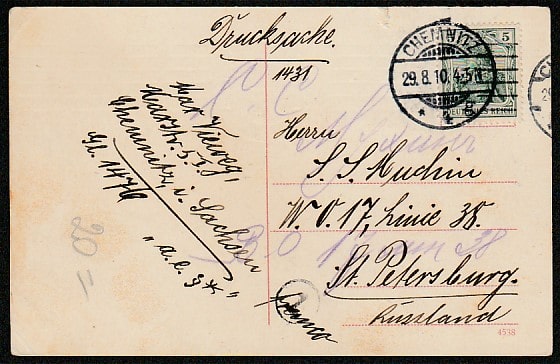 Drucksache.
1431
CHEMNITZ
29.8.10. 4-5 N
* 1 g
5
DEUTSCHES REICH
Max Vieweg,
Chemnitz i. Sachsen
Gl. 1476
" a. l. g * "
Herrn
S. S. Muchin
W. O. 17, Linie 38.
St. Petersburg.
Russland
franco
20=
4538